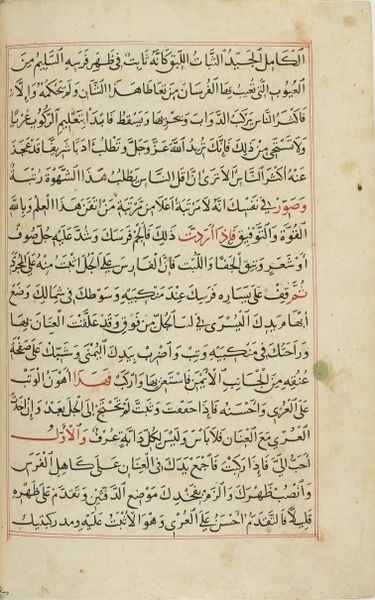 الكامل الجيد الثبات اللبق كأنه ثابت في ظهر فرسه السليم من
العيوب التي تعيب بها الفرسان من تعاطا هذا الشان ولم يحكمه وإلا
فاكثر الناس يركب الدواب ويجريها ويسقط فابدا بتعليم الركوب عريا
ولا تستحي من ذلك فإنك تريد الله عز وجل وتطلب ادبا شريفا قد عجد
عنه اكثر الناس ألا ترى ان اقل الناس يطلب هذا الشهوة رتبة
وصور في نفسك انه لا مرتبة أعلا من مرتبة من اتقن هذا العلم وبالله
القوة والتوفيق فإذا أردت ذلك فالجم فرسك وشد عليه جل صوف
أو شعر وتوق الجفا واللبت فان الفارس على الجل اثبت منه على
ثم قف على يساره فرسك عند منكبيه وسوطك في شمالك وضع
ابهام يدك اليسرى في لبا الجل من فوق وقد علقت العنان بها
وراحتك في منكبيه وثب واضرب بيدك اليمنى وشبك على صفحة
عنقه من الجانب الأيمن فاستعن بها واركب فهذا أهون الوثب
على العرى واحسنه فإذا وثبت لم تحتج إلى الجل بعد وإن اخذت
العرى مع العنان فلا بأس وليس لكل دابة عرف والأول
أحب الي فإذا ركبت فاجمع يدك في العنان على كاهل الفرس
وانصب ظهرك والزم بفخذيك موضع الدفتين وتقدم على ظهره
قليلا فالتقدم احسن على العرى وهو الأثبت عليه ومد ركبتيك